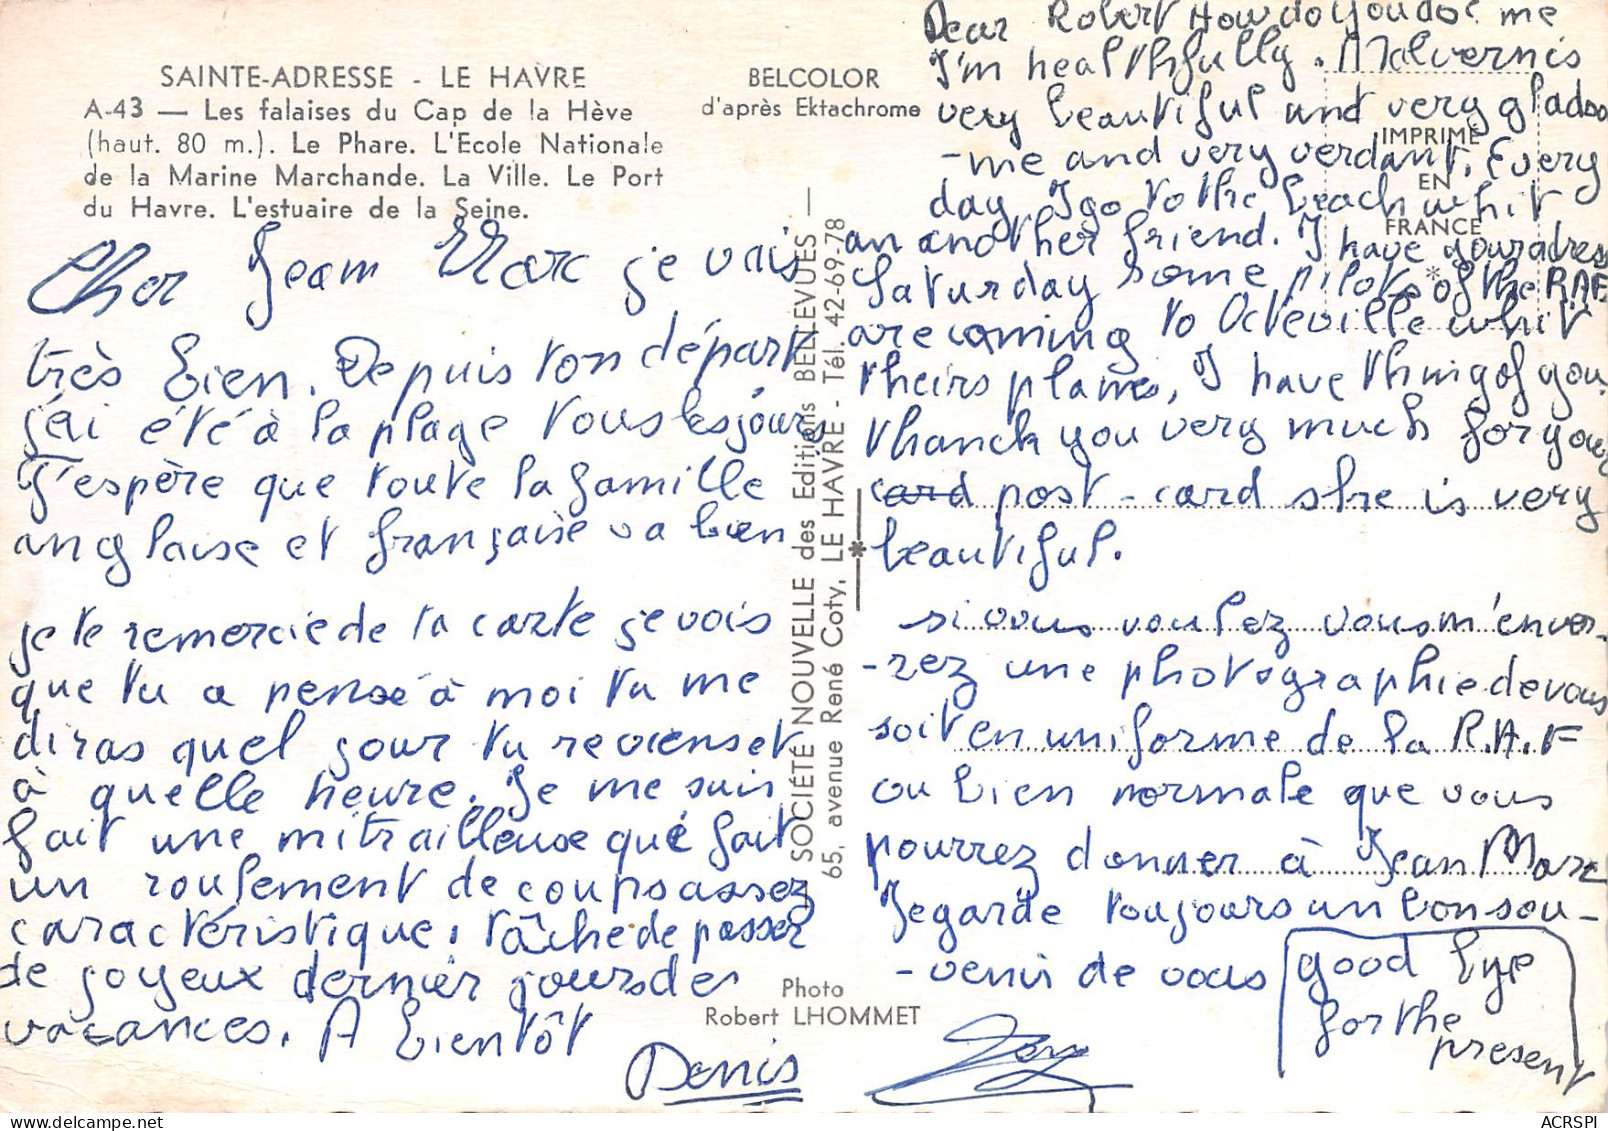 SAINTE-ADRESSE - LE HAVRE
A-43 — Les falaises du Cap de la Hève
(haut. 80 m.). Le Phare. L'Ecole Nationale
de la Marine Marchande. La Ville. Le Port
du Havre. L'estuaire de la Seine.
BELCOLOR
d'après Ektachrome
IMPRIMÉ
EN
FRANCE
*
Cher Jean Marc je vais
très bien. Depuis ton départ
j'ai été à la plage tous les jours
J'espère que toute la famille
anglaise et française va bien
je te remercie de ta carte je vois
que tu a pensé à moi tu me
diras quel jour tu reviens et
à quelle heure. Je me suis
fait une mitrailleuse qué fait
un roulement de coups assez
caractéristique! tâche de passer
de joyeux dernier jours de
vacances. A bientôt
Denis
SOCIÉTÉ NOUVELLE des Editions BELLEVUES —
65, avenue René Coty, LE HAVRE - Tél. 42-69-78
Photo
Robert LHOMMET
Dear Robert How do you do? me
I'm healthfully. Malvernis
very beautiful and very glad so
-me and very verdant. Every
day I go to the beach whit
an another friend. I have your adress
Saturday some pilots of the RAF
are coming to Octeville whit
theirs planes, I have thing of you
thanck you very much for your
card post-card she is very
beautiful.
si vous voulez vous m'enver-
-rez une photographie de vous
soit en uniforme de la R.A.F
ou bien normale que vous
pourrez donner à Jean Marc
Je garde toujours un bon sou-
-venir de vous
good bye
for the
present
ACRSPI